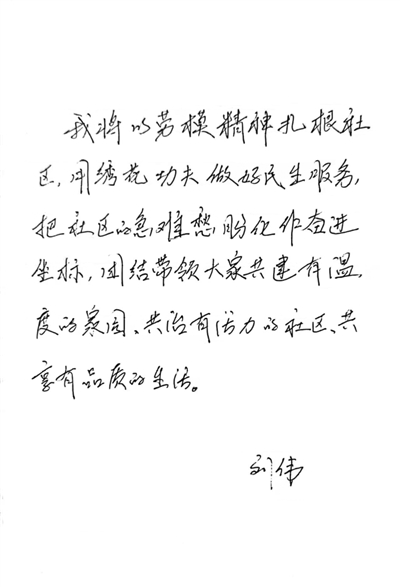 我将以劳模精神扎根社
区，用绣花功夫做好民生服务，
把社区的急难愁盼化作奋进
坐标，团结带领大家共建有温
度的家园、共治有活力的社区、共
享有品质的生活。
刘伟